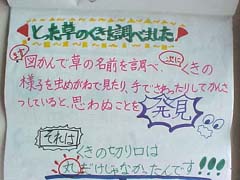 と来草のくきを調べました
まず図かんで草の名前を調べ、次にくきの
様子を虫めがねで見たり、手でさわったりしてかんさ
つしていると、思わぬことを発見
それは
くきの切り口は
丸だけじゃなかたんです!!!